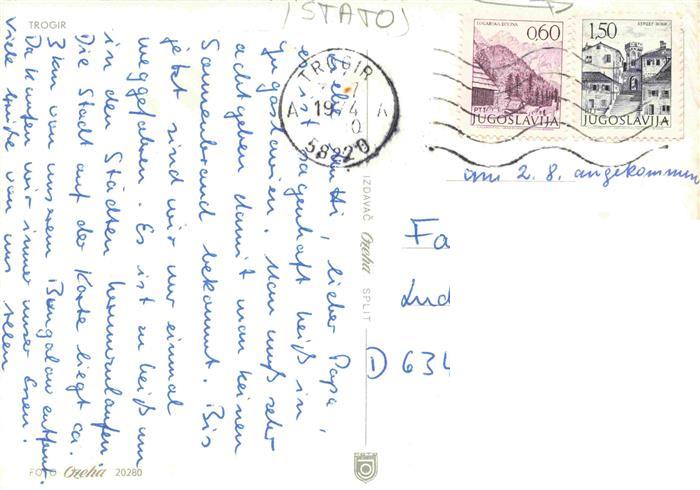 TROGIR
(STATO)
Liebe Mutti, lieber Papa,
es ist sagenhaft heiß in
Jugoslawien. Man muß sehr
achtgeben damit man keinen
Sonnenbrand bekommt. Bis
jetzt sind wir nur einmal
weggefahren. Es ist zu heiß um
in den Städten herumzulaufen.
Die Stadt auf der Karte liegt ca.
3 km von unserem Bungalow entfernt.
Da kaufen wir immer unser Essen.
Viele Grüße von uns allen
FOTO Ozeha 20280
IZDAVAČ Ozeha SPLIT
TROGIR
A A
1974
58220
0.60
JUGOSLAVIJA
1.50
JUGOSLAVIJA
am 2. 8. angekommen
Fa
Lud
D 634